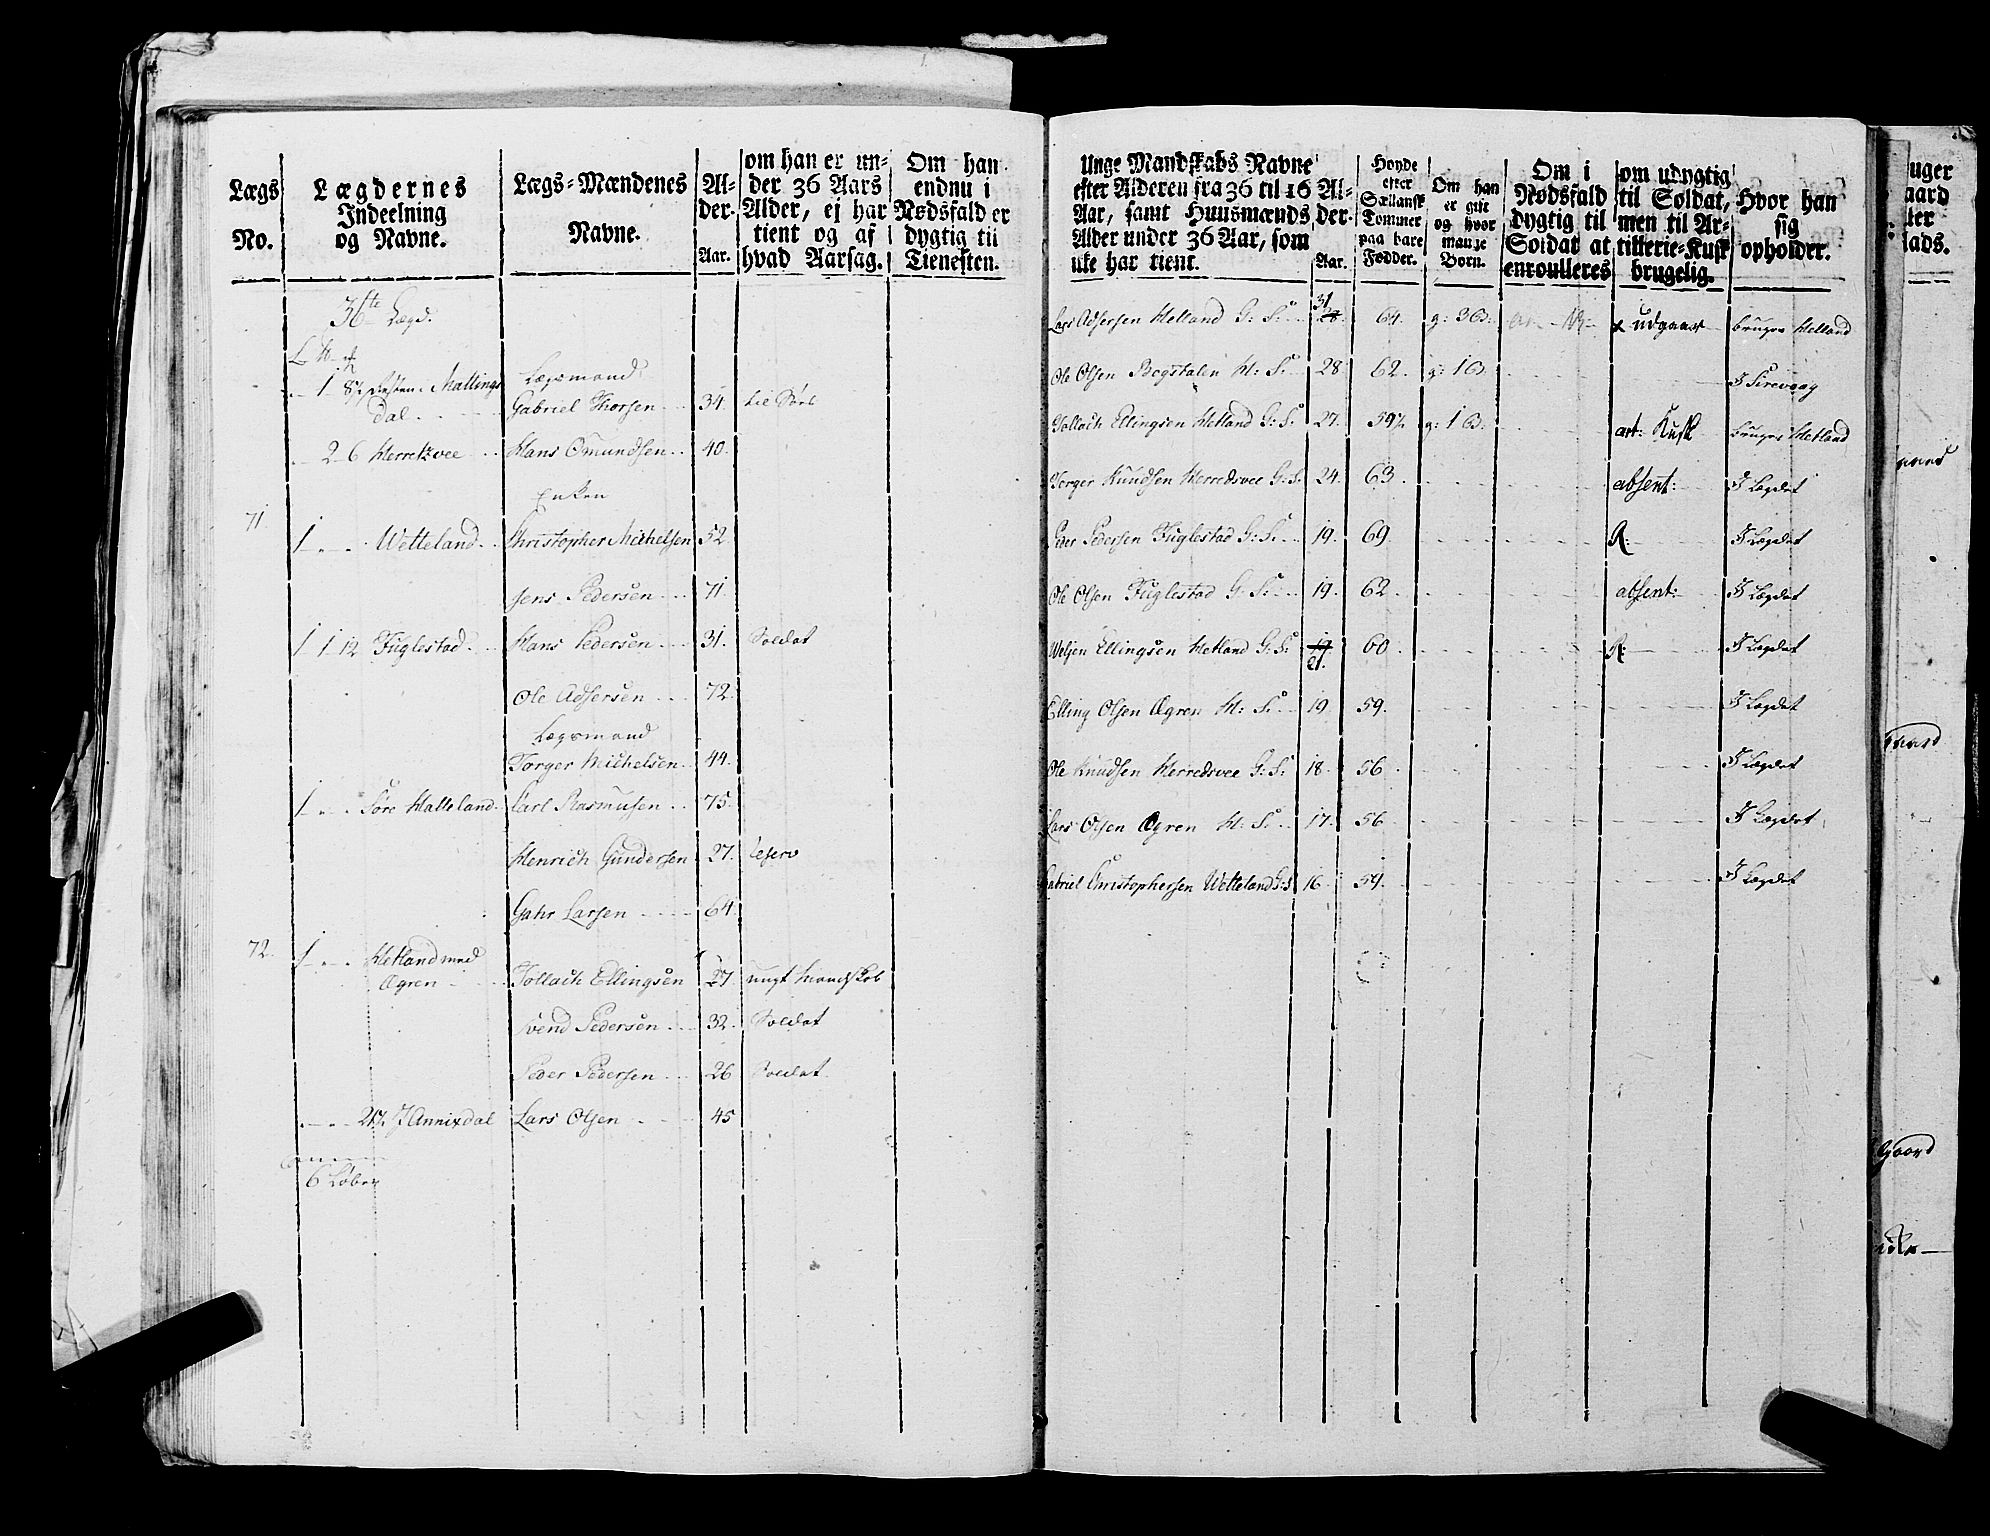 Lægs
No.
Lægdernes
Indeelning
og Navne.
Lægs-Mændenes
Navne.
Al-
der.
Aar.
om han er un-
der 36 Aars
Alder, ej har
tient og af
hvad Aarsag.
Om han
endnu i
Nødsfald er
dygtig til
Tienesten.
36te Lægd.
1 8½ Malings
dal
Lægsmand
Gabriel Thorsen 34.
2 6 Herretzvee Hans Omundsen 40.
Enken
71. 1 Wetteland Christopher Michelsen 52
Jens Pedersen 71.
1 1 12 Fuglestad Hans Pedersen 31. Soldat
Ole Adsersen 72.
Lægsmand
Torger Michelsen 44.
1 Søre Halleland Carl Rasmusen 75.
Henrich Gundersen 27.
Gahr Larsen 64.
72. 1 Hetland med
Ogren Tollach Ellingsen 27 ungt Mandskab
Svend Pedersen 32. Soldat
Peder Pedersen 26 Soldat
2½ J Annixdal Lars Olsen 45
6 Løber
Unge Mandskabs Navne
efter Alderen fra 36 til 16
Aar, samt Huusmænds
Alder under 36 Aar, som
ikke har tient.
Al-
der.
Aar.
Høyde
efter
Sællansk
Tommer
paa bare
Fødder.
Om han
er gift
og hvor
mange
Børn.
Om i
Nødsfald
dygtig til
Soldat at
enroulleres
om udygtig
til Soldat,
men til Ar-
tillerie-Kusk
brugelig.
Hvor han
sig
opholder.
Lars Adsersen Hetland G: S: 31 28. 64. g: 3 B: udgaar bruger Hetland
Ole Olsen Bogstalen H: S: 28. 62. g: 1 B. I Sirevaag
Tollach Ellingsen Hetland G: S: 27. 59½ g: 1 B. art: Kusk bruger Hetland
Torger Knudsen Herredsvee G: S: 24. 63. absent: I Lægdet
Peder Pedersen Fuglestad G: S: 19. 69. R: I Lægdet
Ole Olsen Fuglestad G: S: 19. 62. absent: I Lægdet
Weljen Ellingsen Hetland G: S: 19 21. 60. R: I Lægdet
Elling Olsen Ogren H: S: 19. 59. I Lægdet
Ole Knudsen Herredsvee G: S: 18. 56. I Lægdet
Lars Olsen Ogren H: S: 17. 56 I Lægdet
Gabriel Christophersen Wetteland G: S: 16. 54. I Lægdet